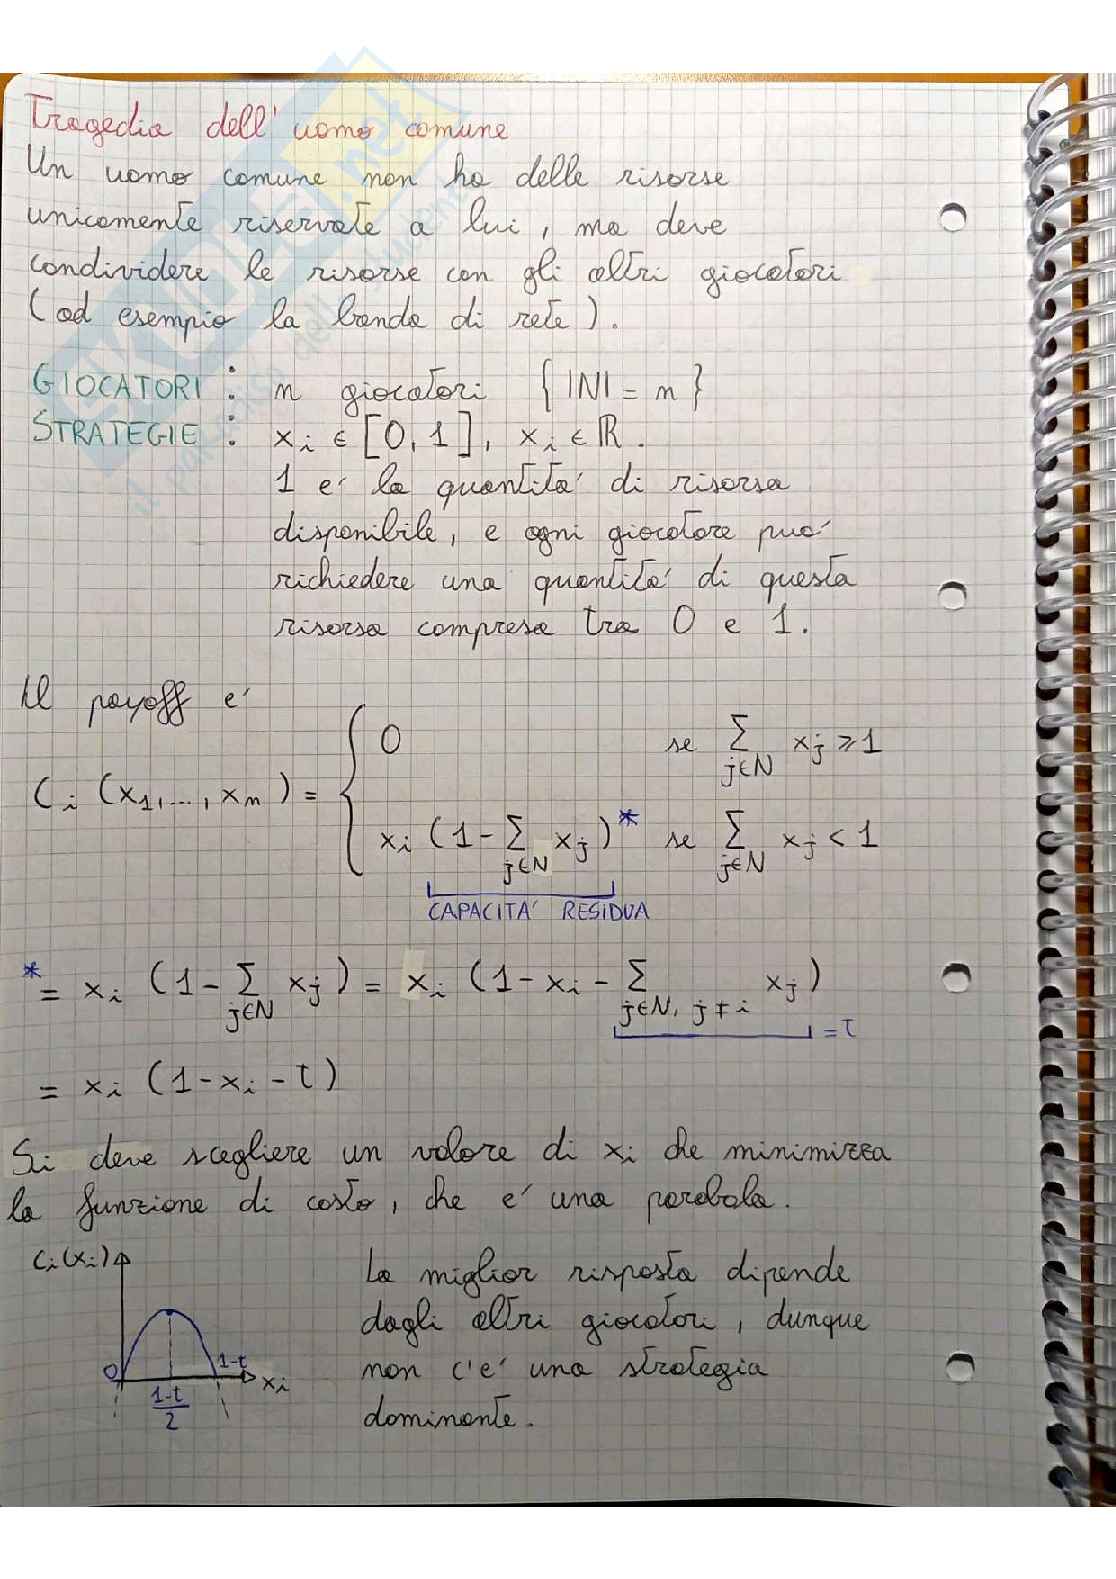 Tragedia dell'uomo comune
Un uomo comune non ha delle risorse
unicamente riservate a lui, ma deve
condividere le risorse con gli altri giocatori
(ad esempio la banda di rete).
GIOCATORI : n giocatori {|N| = n}
STRATEGIE : xᵢ ∈ [0, 1], xᵢ ∈ ℝ.
1 e' la quantita' di risorsa
disponibile, e ogni giocatore puo'
richiedere una quantita' di questa
risorsa compresa tra 0 e 1.
Il payoff e'
Cᵢ (x₁, ..., xₙ) = { 0 se Σ_{j∈N} xⱼ ⩾ 1
xᵢ (1 - Σ_{j∈N} xⱼ)* se Σ_{j∈N} xⱼ < 1
CAPACITA' RESIDUA
* = xᵢ (1 - Σ_{j∈N} xⱼ) = xᵢ (1 - xᵢ - Σ_{j∈N, j≠i} xⱼ)
= t
= xᵢ (1 - xᵢ - t)
Si deve scegliere un valore di xᵢ che minimizza
la funzione di costo, che e' una parabola.
Cᵢ(xᵢ)
0
1-t
xᵢ
1-t
2
La miglior risposta dipende
dagli altri giocatori, dunque
non c'e' una strategia
dominante.
skuola.net